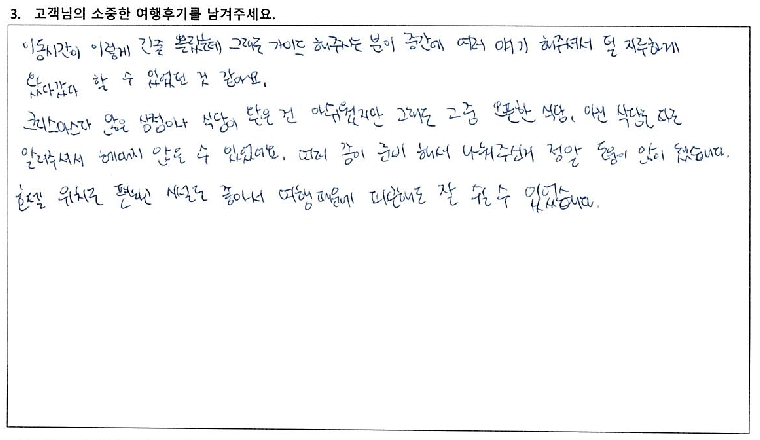 3. 고객님의 소중한 여행후기를 남겨주세요.
이동시간이 이렇게 긴줄 몰랐는데 그래도 가이드 해주시는 분이 중간에 여러 얘기 해주셔서 덜 지루하게
왔다갔다 할 수 있었던 것 같아요.
크리스마스다 많은 상점이나 식당이 닫은 건 아쉬웠지만 그래도 그중 오픈한 식당, 이런 식당들
알려주셔서 헤매지 않을 수 있었어요. 미리 종이 준비 해서 나눠주신게 정말 도움이 많이 됐습니다.
호텔 위치도 시설도 좋아서 여행때문에 피곤해도 잘 쉴 수 있었습니다.